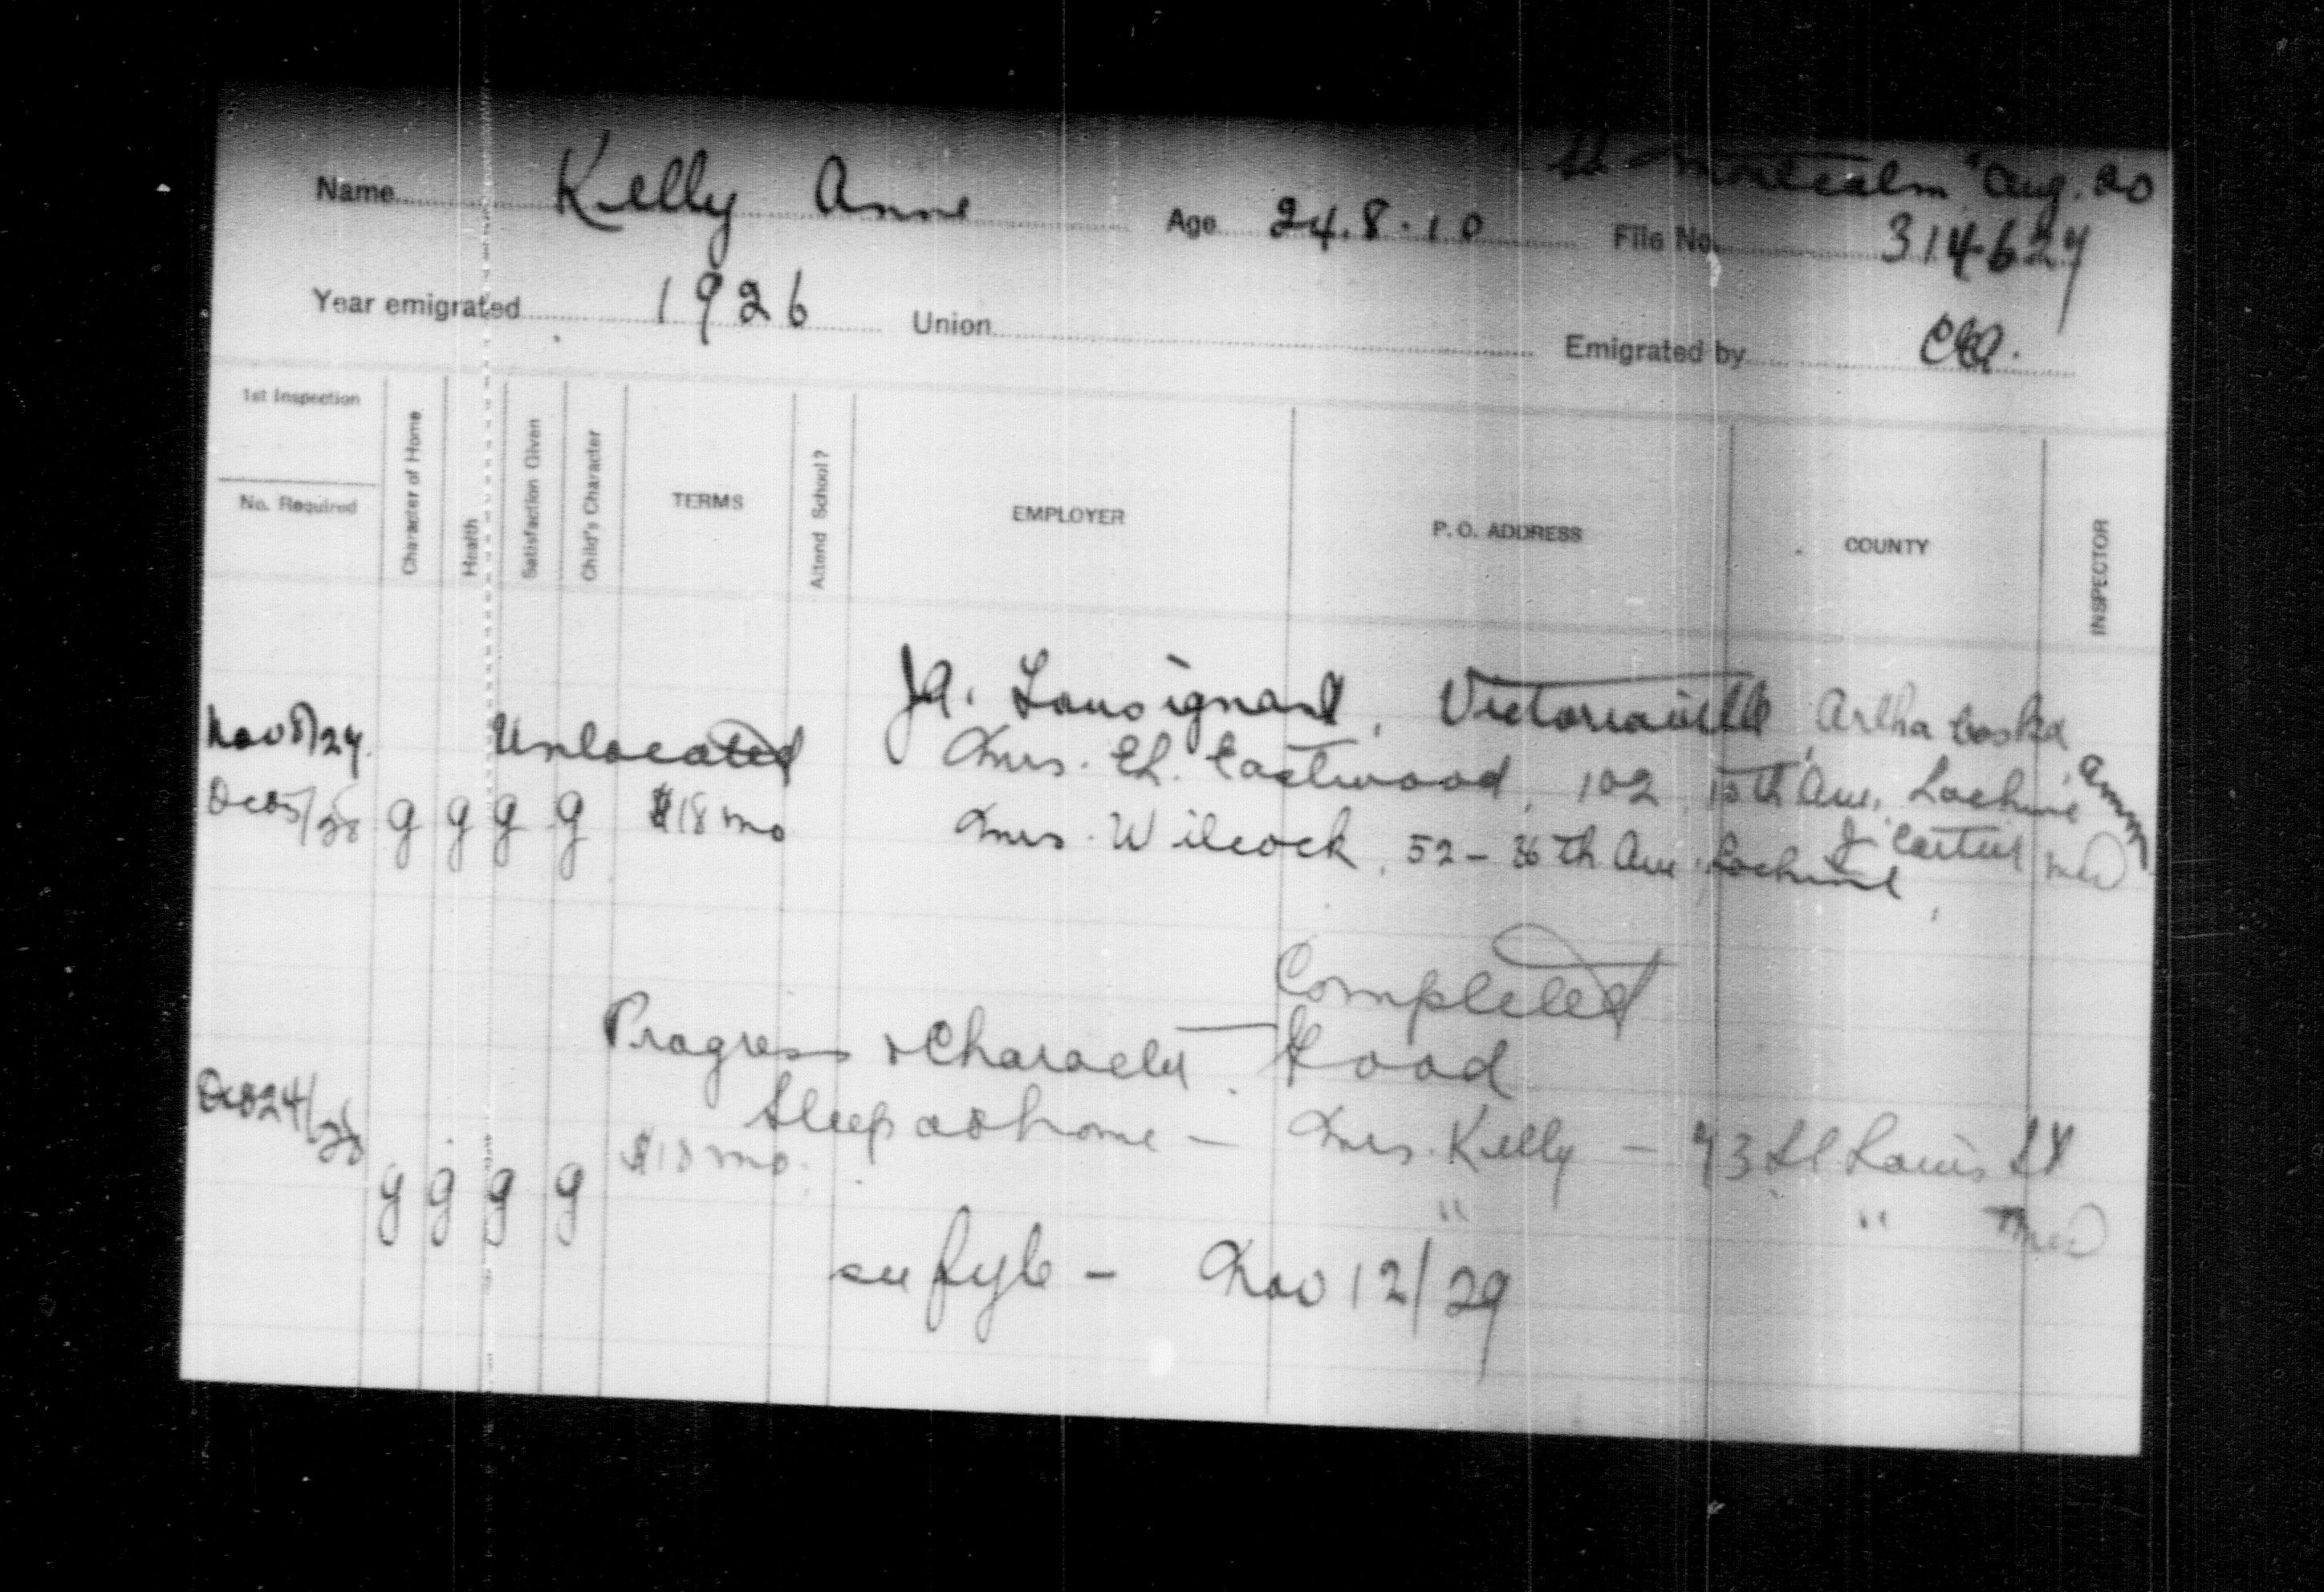 Montcalm" Aug. 20
Name Kelly Anne Age 24.8.10 File No. 314627
Year emigrated 1926 Union Emigrated by
1st Inspection
No. Required
Character of Home
Health
Satisfaction Given
Child's Character
TERMS
Attend School?
EMPLOYER
P. O. ADDRESS
COUNTY
INSPECTOR
JA. Victoriaville, Arthabaska
Nov 8/27. Unlocated Mrs. Eh. Eastwood, 102, 15th Ave, Lachine
Dec 5/28 g g g g $18 mo Mrs. Wilcock, 52 - 36th Ave, Lachine J Cartier
Completed
Progress & Character. Good
Sleep at home — Mrs. Kelly — 73 St Louis St
Dec 24/28 g g g g $18 mo. " "
see fyle - Nov 12/29